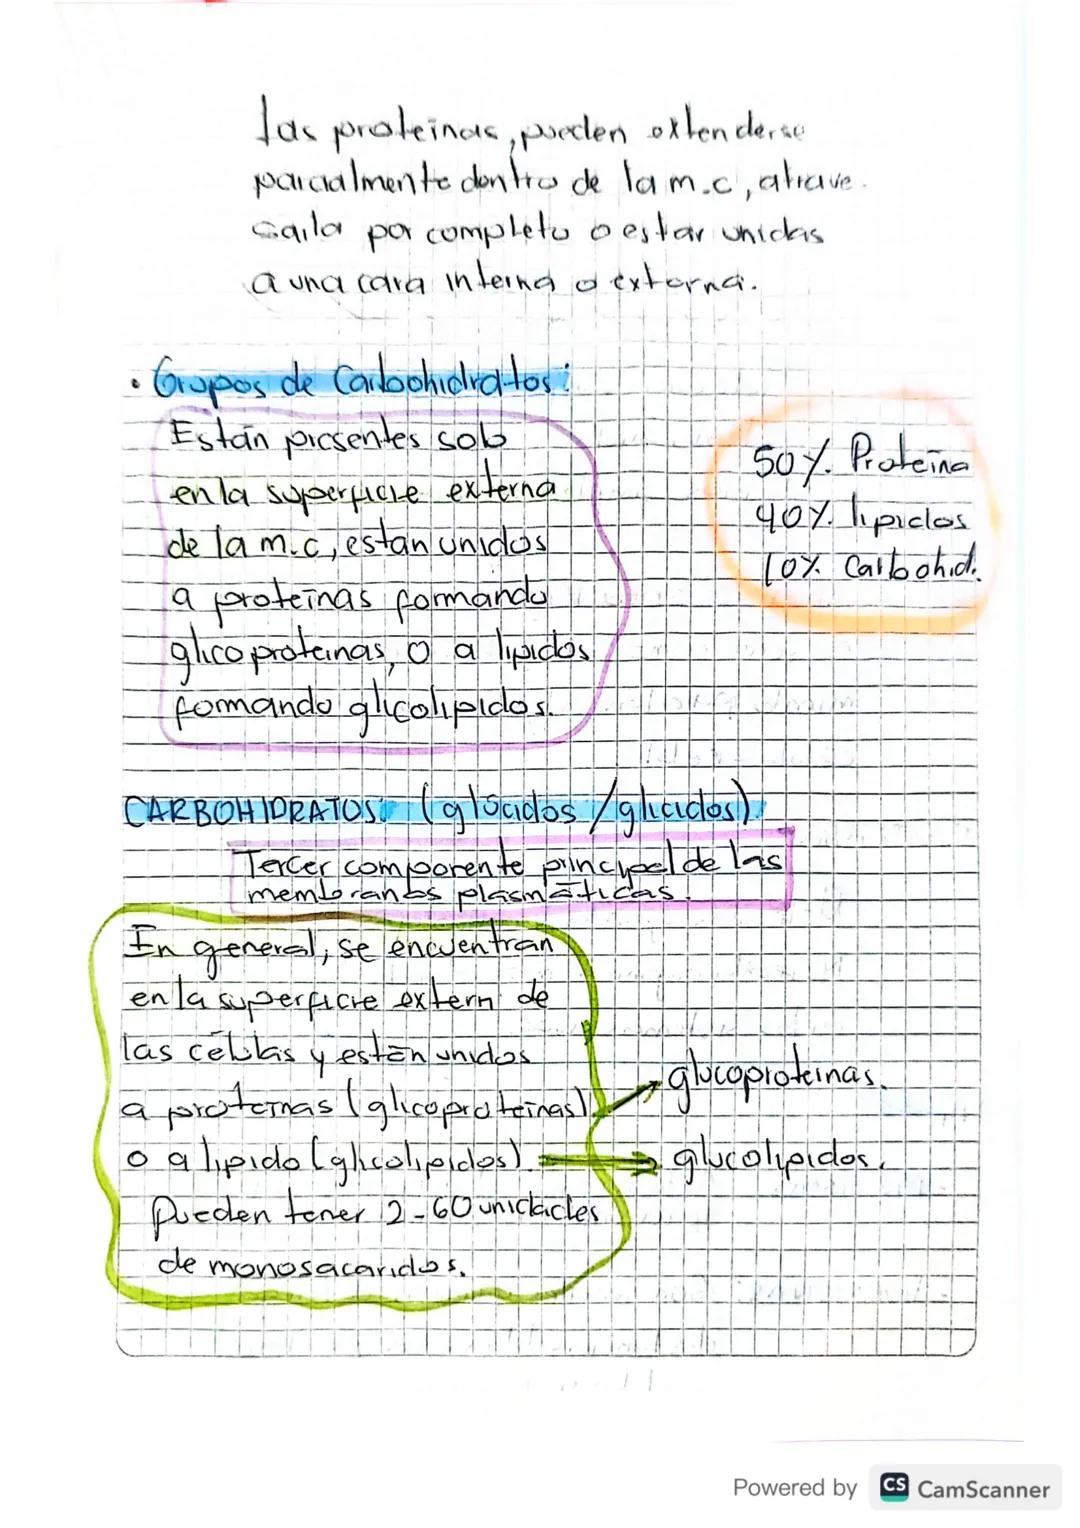 las proteínas, pueden extenderse
parcialmente dentro de la m.c, atrave.
sarla por completo o estar unidas
a una cara interna o externa.
• Grupos de Carbohidratos:
Están presentes solo
en la superficie externa
de la m.c, están unidos
a proteínas formando
glicoproteínas, o a lípidos
formando glicolípidos.
50% Proteína
40% lípidos
10% Carbohid.
CARBOHIDRATOS: (glúcidos/glícidos)
Tercer componente principal de las
membranas plasmáticas.
En general, se encuentran
en la superficie extern de
las células y están unidos
a proteínas (glicoproteínas)
o a lípido (glicolípidos).
Pueden tener 2-60 unidades
de monosacaridos.
glucoproteinas.
glucolipidos.
Powered by CS CamScanner